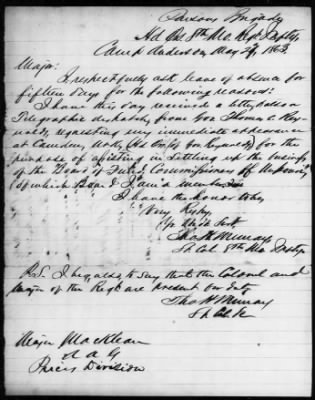 Parsons Brigade
Hd Qrs 8th Mo Regt Infty
Camp Anderson May 27, 1863
Major:
I respectfully ask leave of absence for
fifteen days for the following reasons:
I have this day received a letter, also a
Telegraphic dispatch, from Gov Thomas C. Rey-
nolds, requesting my immediate appearance
at Camden, Ark, (Hd Qrs Gov Reynolds) for the
purpose of assisting in settling up the business
of the Board of
(of which Board I am a member
I have the honor to be,
Very Resptly,
Yr Obdt Servt,
Thos H Murray
Lt Col. 8th Mo Infty
P.S. I beg also to say that the Colonel and
Major of the Regt are present on duty
Thos H Murray
Lt Col &c
Major Maclean
A A G
Prices Division